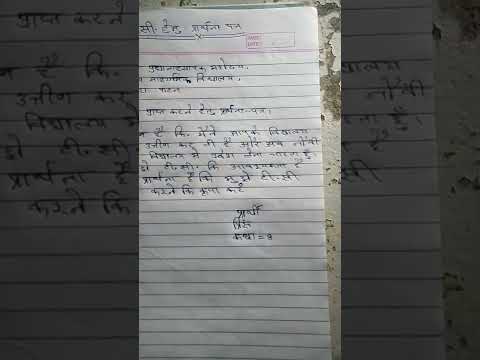 सी. हेतु प्रार्थना पत्र
PAGE:
DATE:
प्रधानाध्यापक महोदय,
माध्यमिक विद्यालय,
प्राप्त करने हेतु प्रार्थना-पत्र।
है कि मैंने आपके विद्यालय
उत्तीर्ण कर ली है और अब नौवीं
विद्यालय में प्रवेश लेना चाहता हूँ।
टी.सी. कि आवश्यकता है
प्रार्थना है कि मुझे टी.सी
करने कि कृपा करें
प्रार्थी
कक्षा = 8